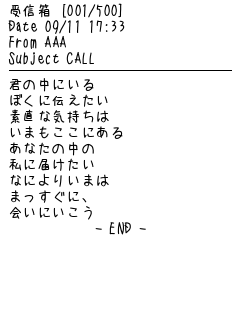 受信箱 [001/500]
Date 09/11 17:33
From AAA
Subject CALL
君の中にいる
ぼくに伝えたい
素直な気持ちは
いまもここにある
あなたの中の
私に届けたい
なによりいまは
まっすぐに、
会いにいこう
- END -